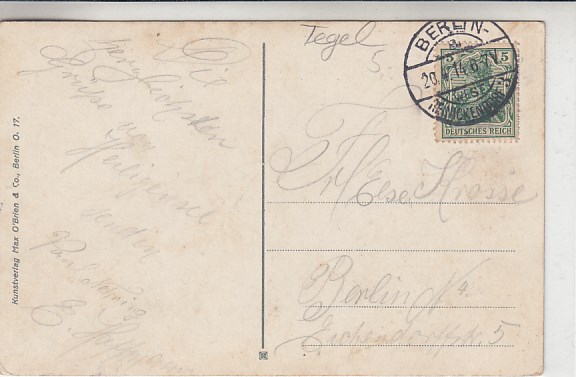 Die
herzlichsten
Grüße
von
Heiligensee
senden
E. Hoffmann
Kunstverlag Max O'Brien & Co., Berlin O. 17.
Tegel
5
BERLIN-
20. 14. 6-7 N
REINICKENDORF
5
DEUTSCHES REICH
Frl. Else Krosse
Berlin N 4.
Eichendorffstr. 5